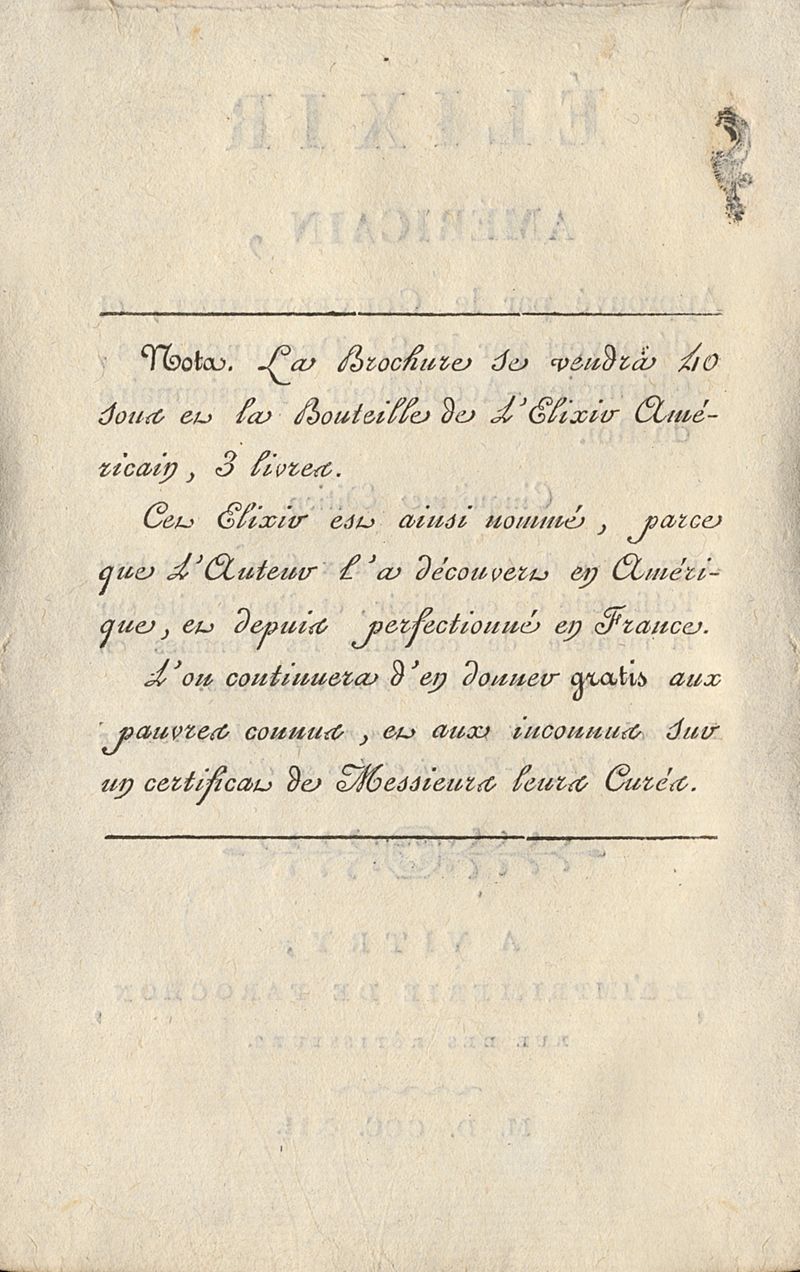 Nota. La Brochure se vendra 40
sous et la Bouteille de L'Elixir Amé-
ricain, 3 livres.
Cet Elixir est ainsi nommé, parce
que L'Auteur l'a découvert en Améri-
que, et depuis perfectionné en France.
L'on continuera d'en donner gratis aux
pauvres connus, et aux inconnus sur
un certificat de Messieurs leurs Curés.